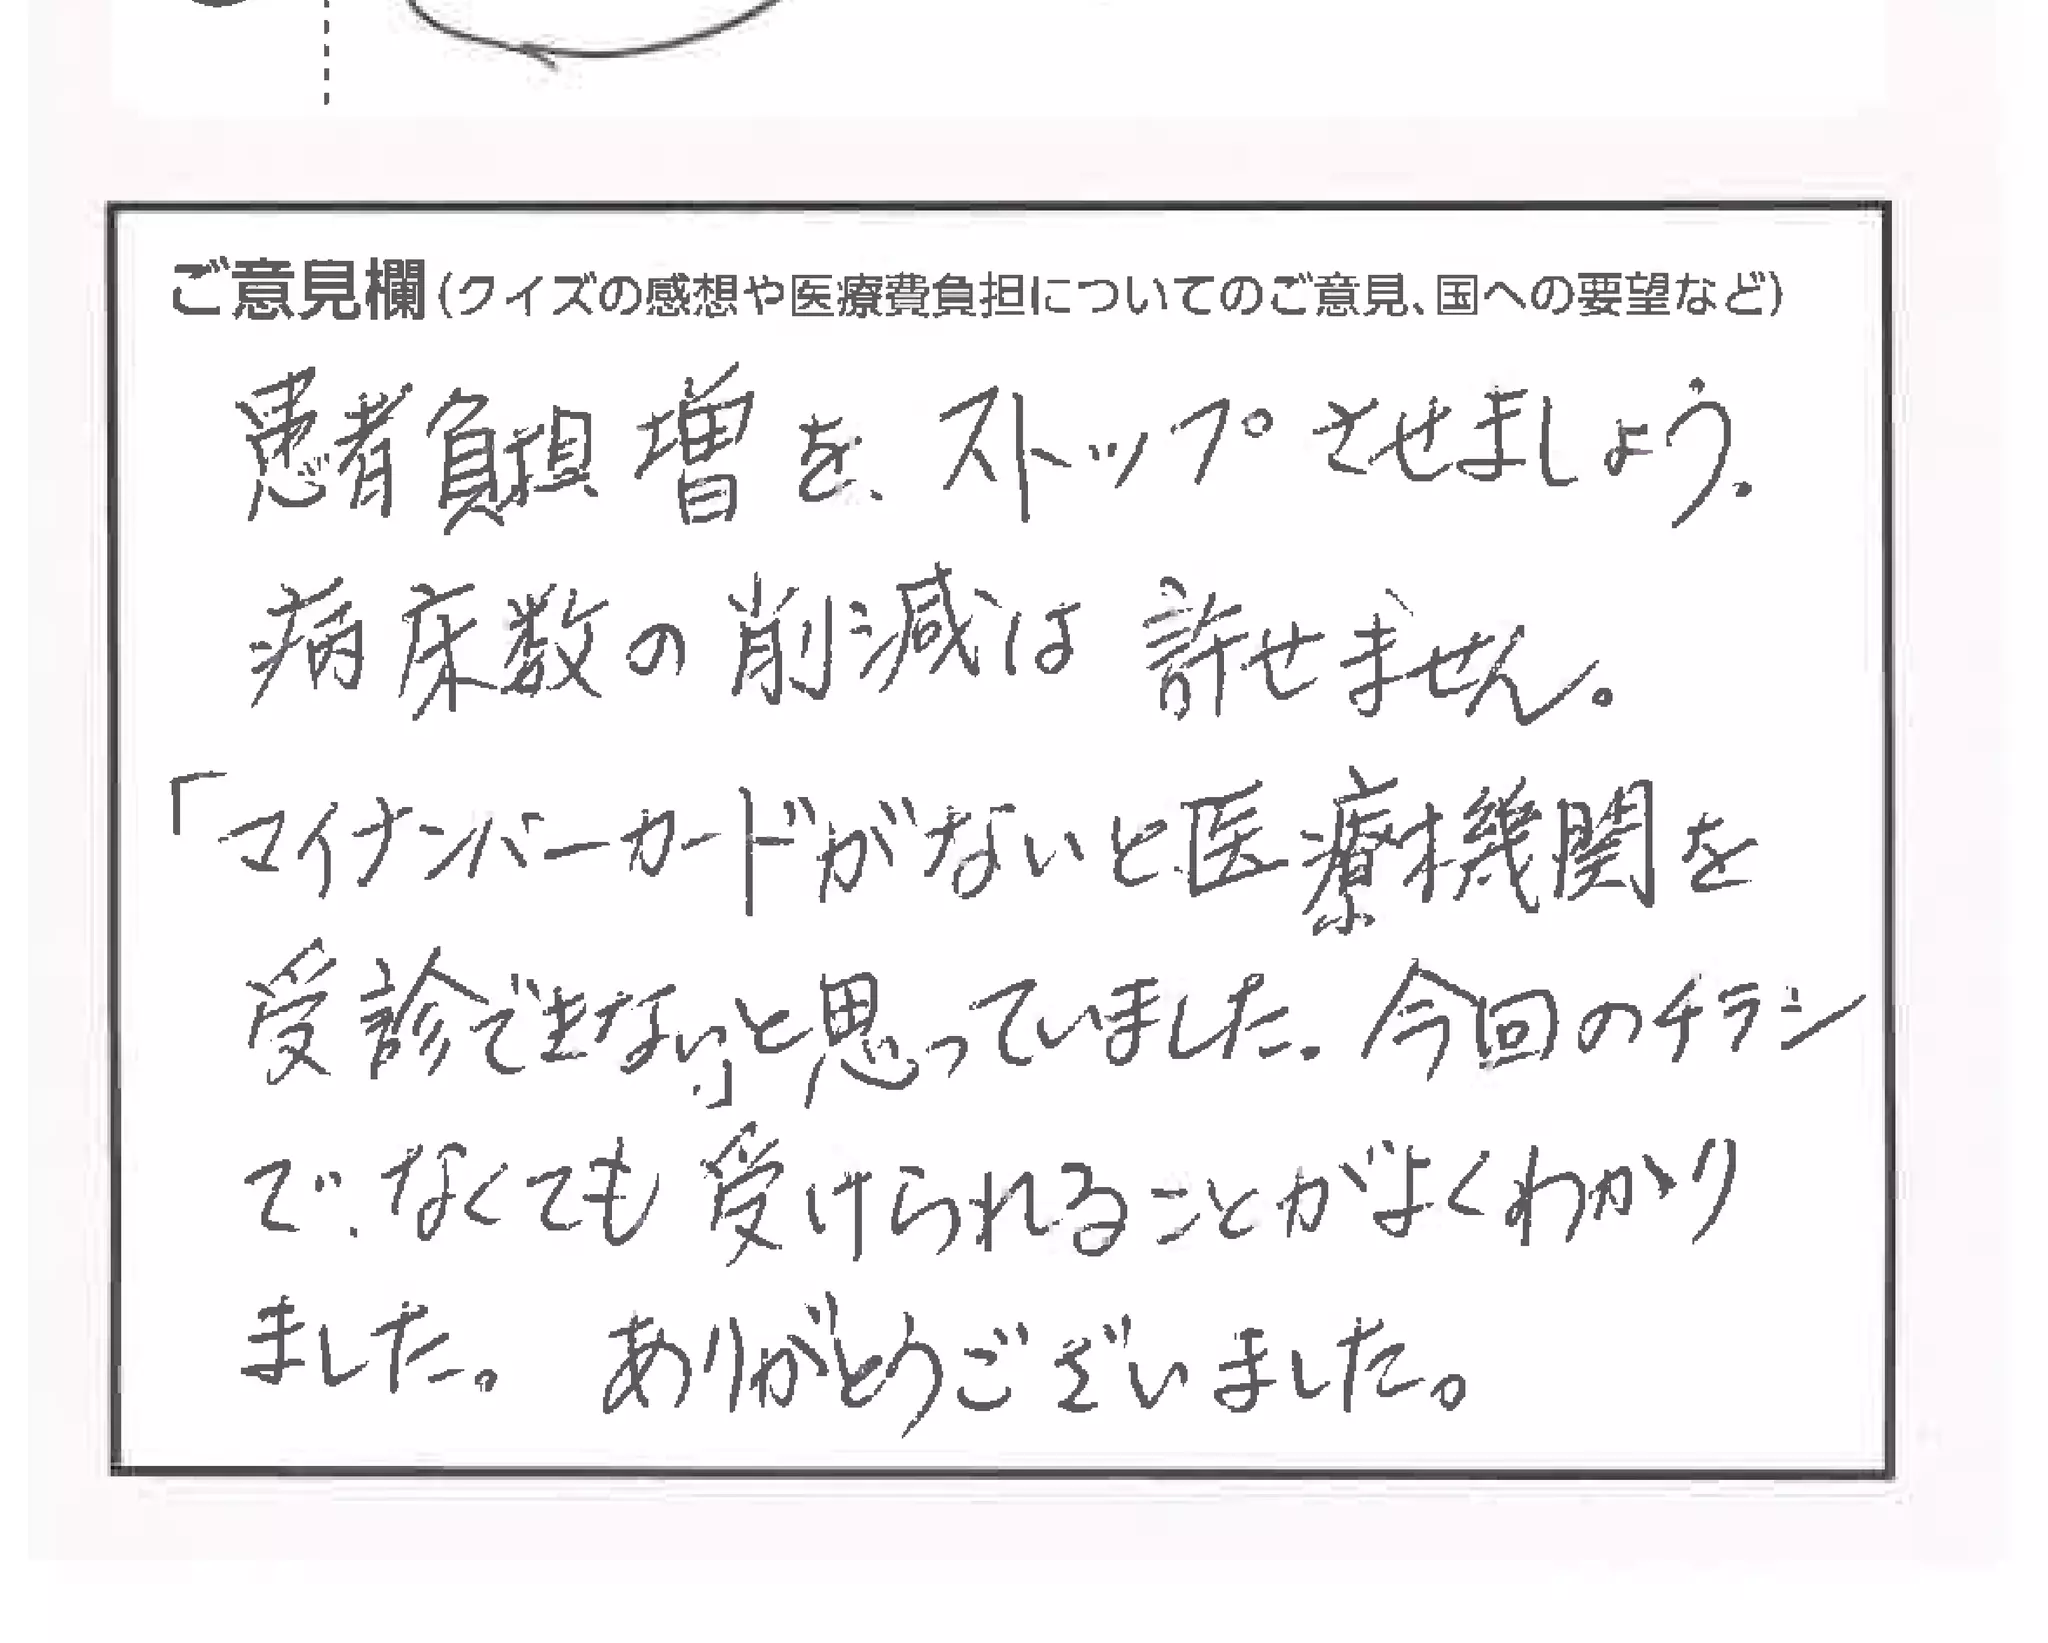 ご意見欄(クイズの感想や医療費負担についてのご意見、国への要望など)
患者負担増を、ストップさせましょう。
病床数の削減は許せません。
「マイナンバーカードがないと医療機関を
受診できない」と思っていました。今回のチラシ
で、なくても受けられることがよくわかり
ました。ありがとうございました。